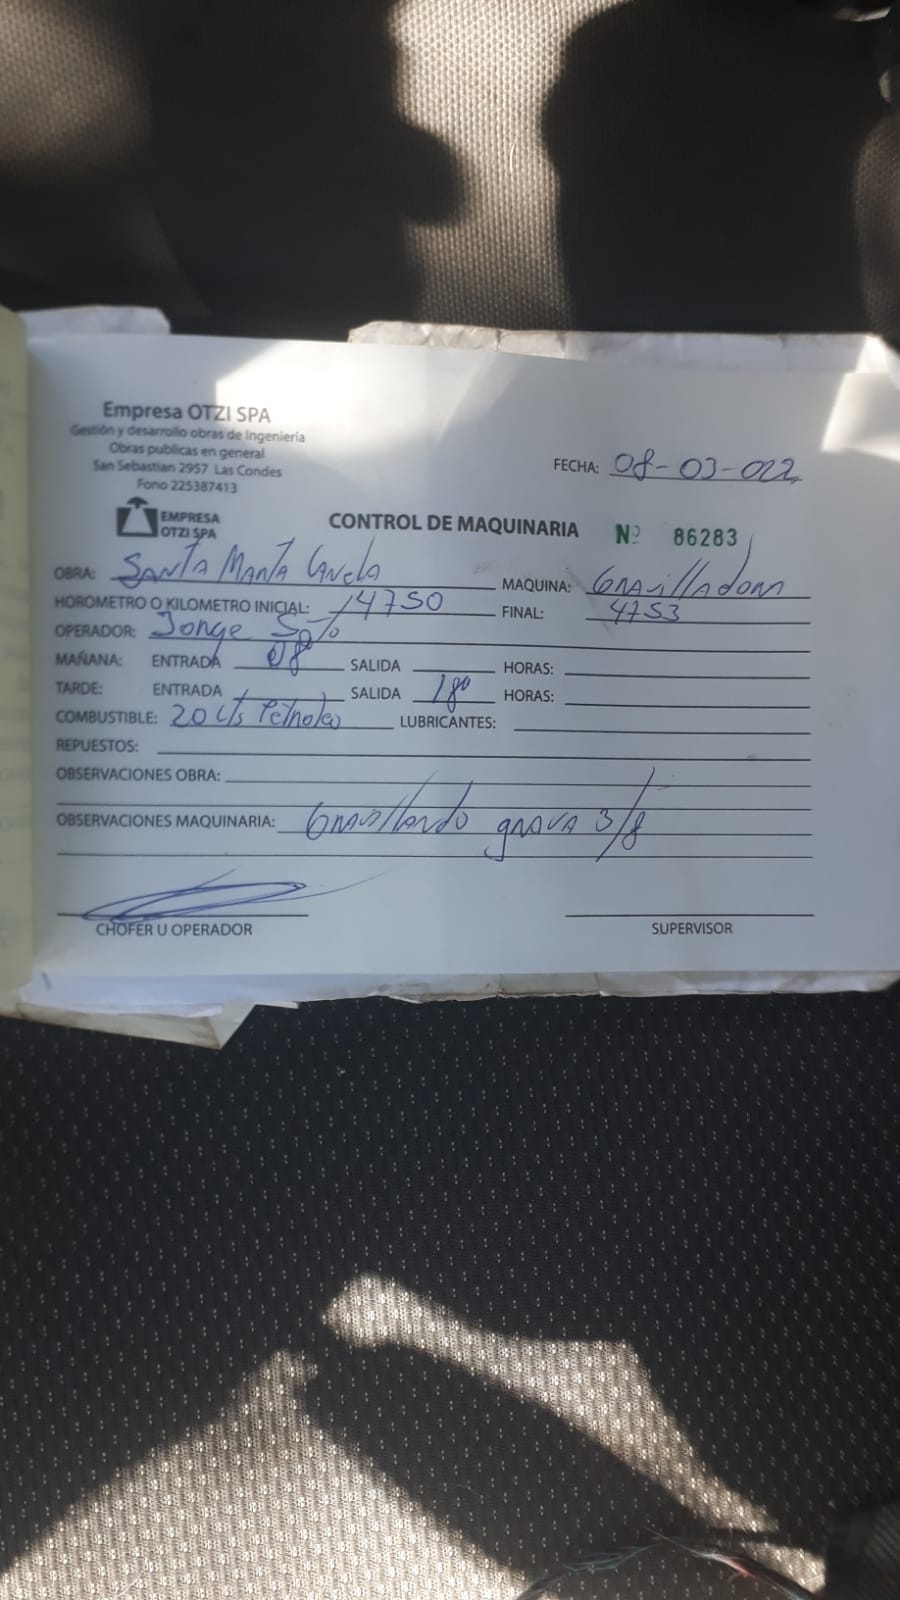 Empresa OTZI SPA
Gestión y desarrollo obras de Ingeniería
Obras publicas en general
San Sebastian 2957 Las Condes
Fono 225387413
FECHA: 08-03-022
EMPRESA
OTZI SPA
CONTROL DE MAQUINARIA Nº 86283
OBRA: SANTA MARTA CANELA MAQUINA: GRAVILLADORA
HOROMETRO O KILOMETRO INICIAL: 4750 FINAL: 4753
OPERADOR: Jorge Soto
MAÑANA: ENTRADA 08⁰⁰ SALIDA HORAS:
TARDE: ENTRADA SALIDA 18⁰⁰ HORAS:
COMBUSTIBLE: 20 Lts Petroleo LUBRICANTES:
REPUESTOS:
OBSERVACIONES OBRA:
OBSERVACIONES MAQUINARIA: GRAVILLANDO GRAVA 3/8
CHOFER U OPERADOR SUPERVISOR